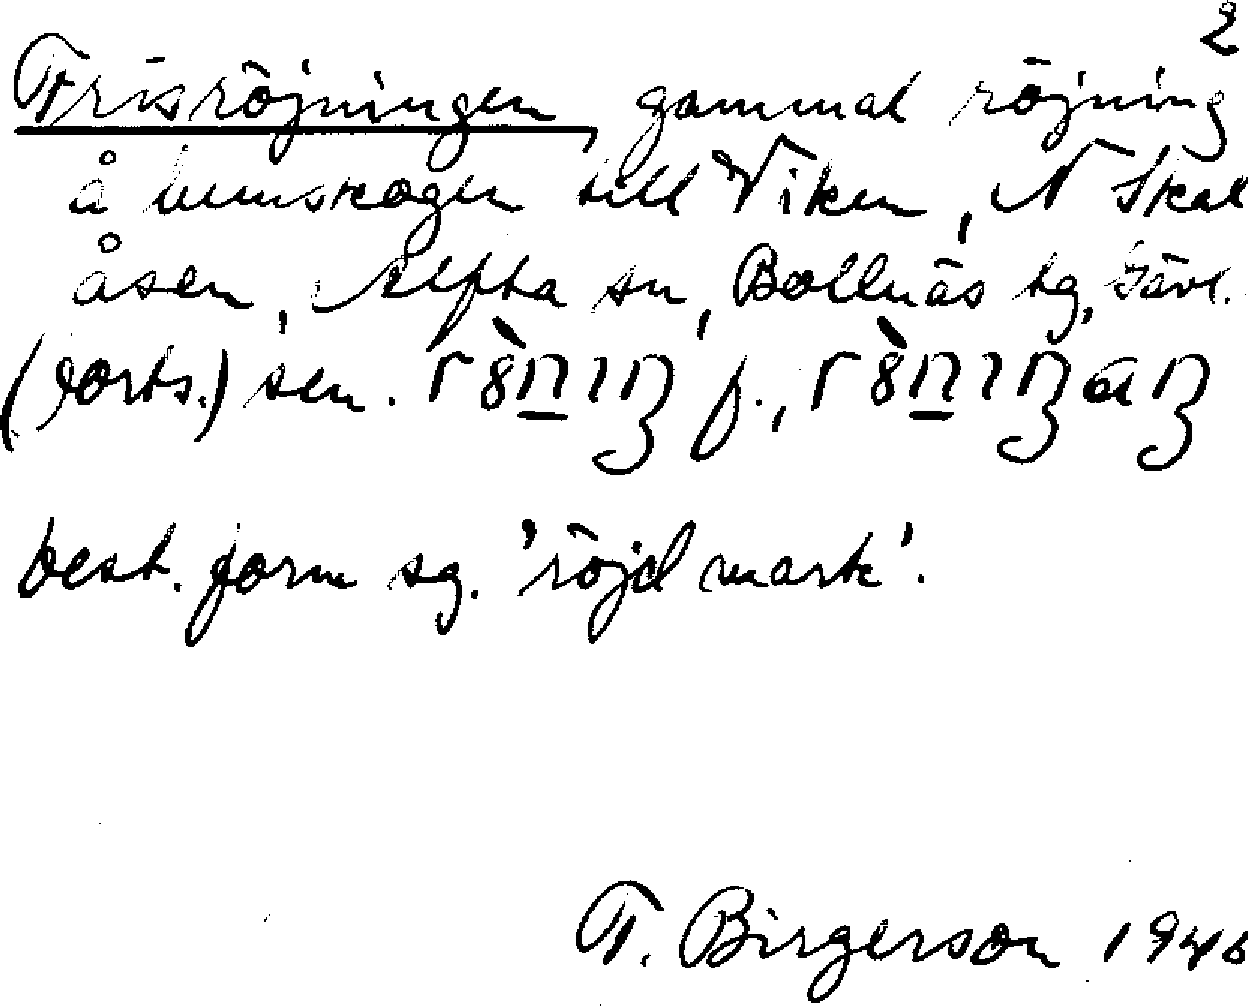 2
Frisröjningen, gammal röjning
å hemskogen till Viken, N Skål
åsen, Alfta sn, Bollnäs tg, Gävl.
(forts.) sen. f.,
best. form sg. 'röjd mark'.
T. Birgerson 1946